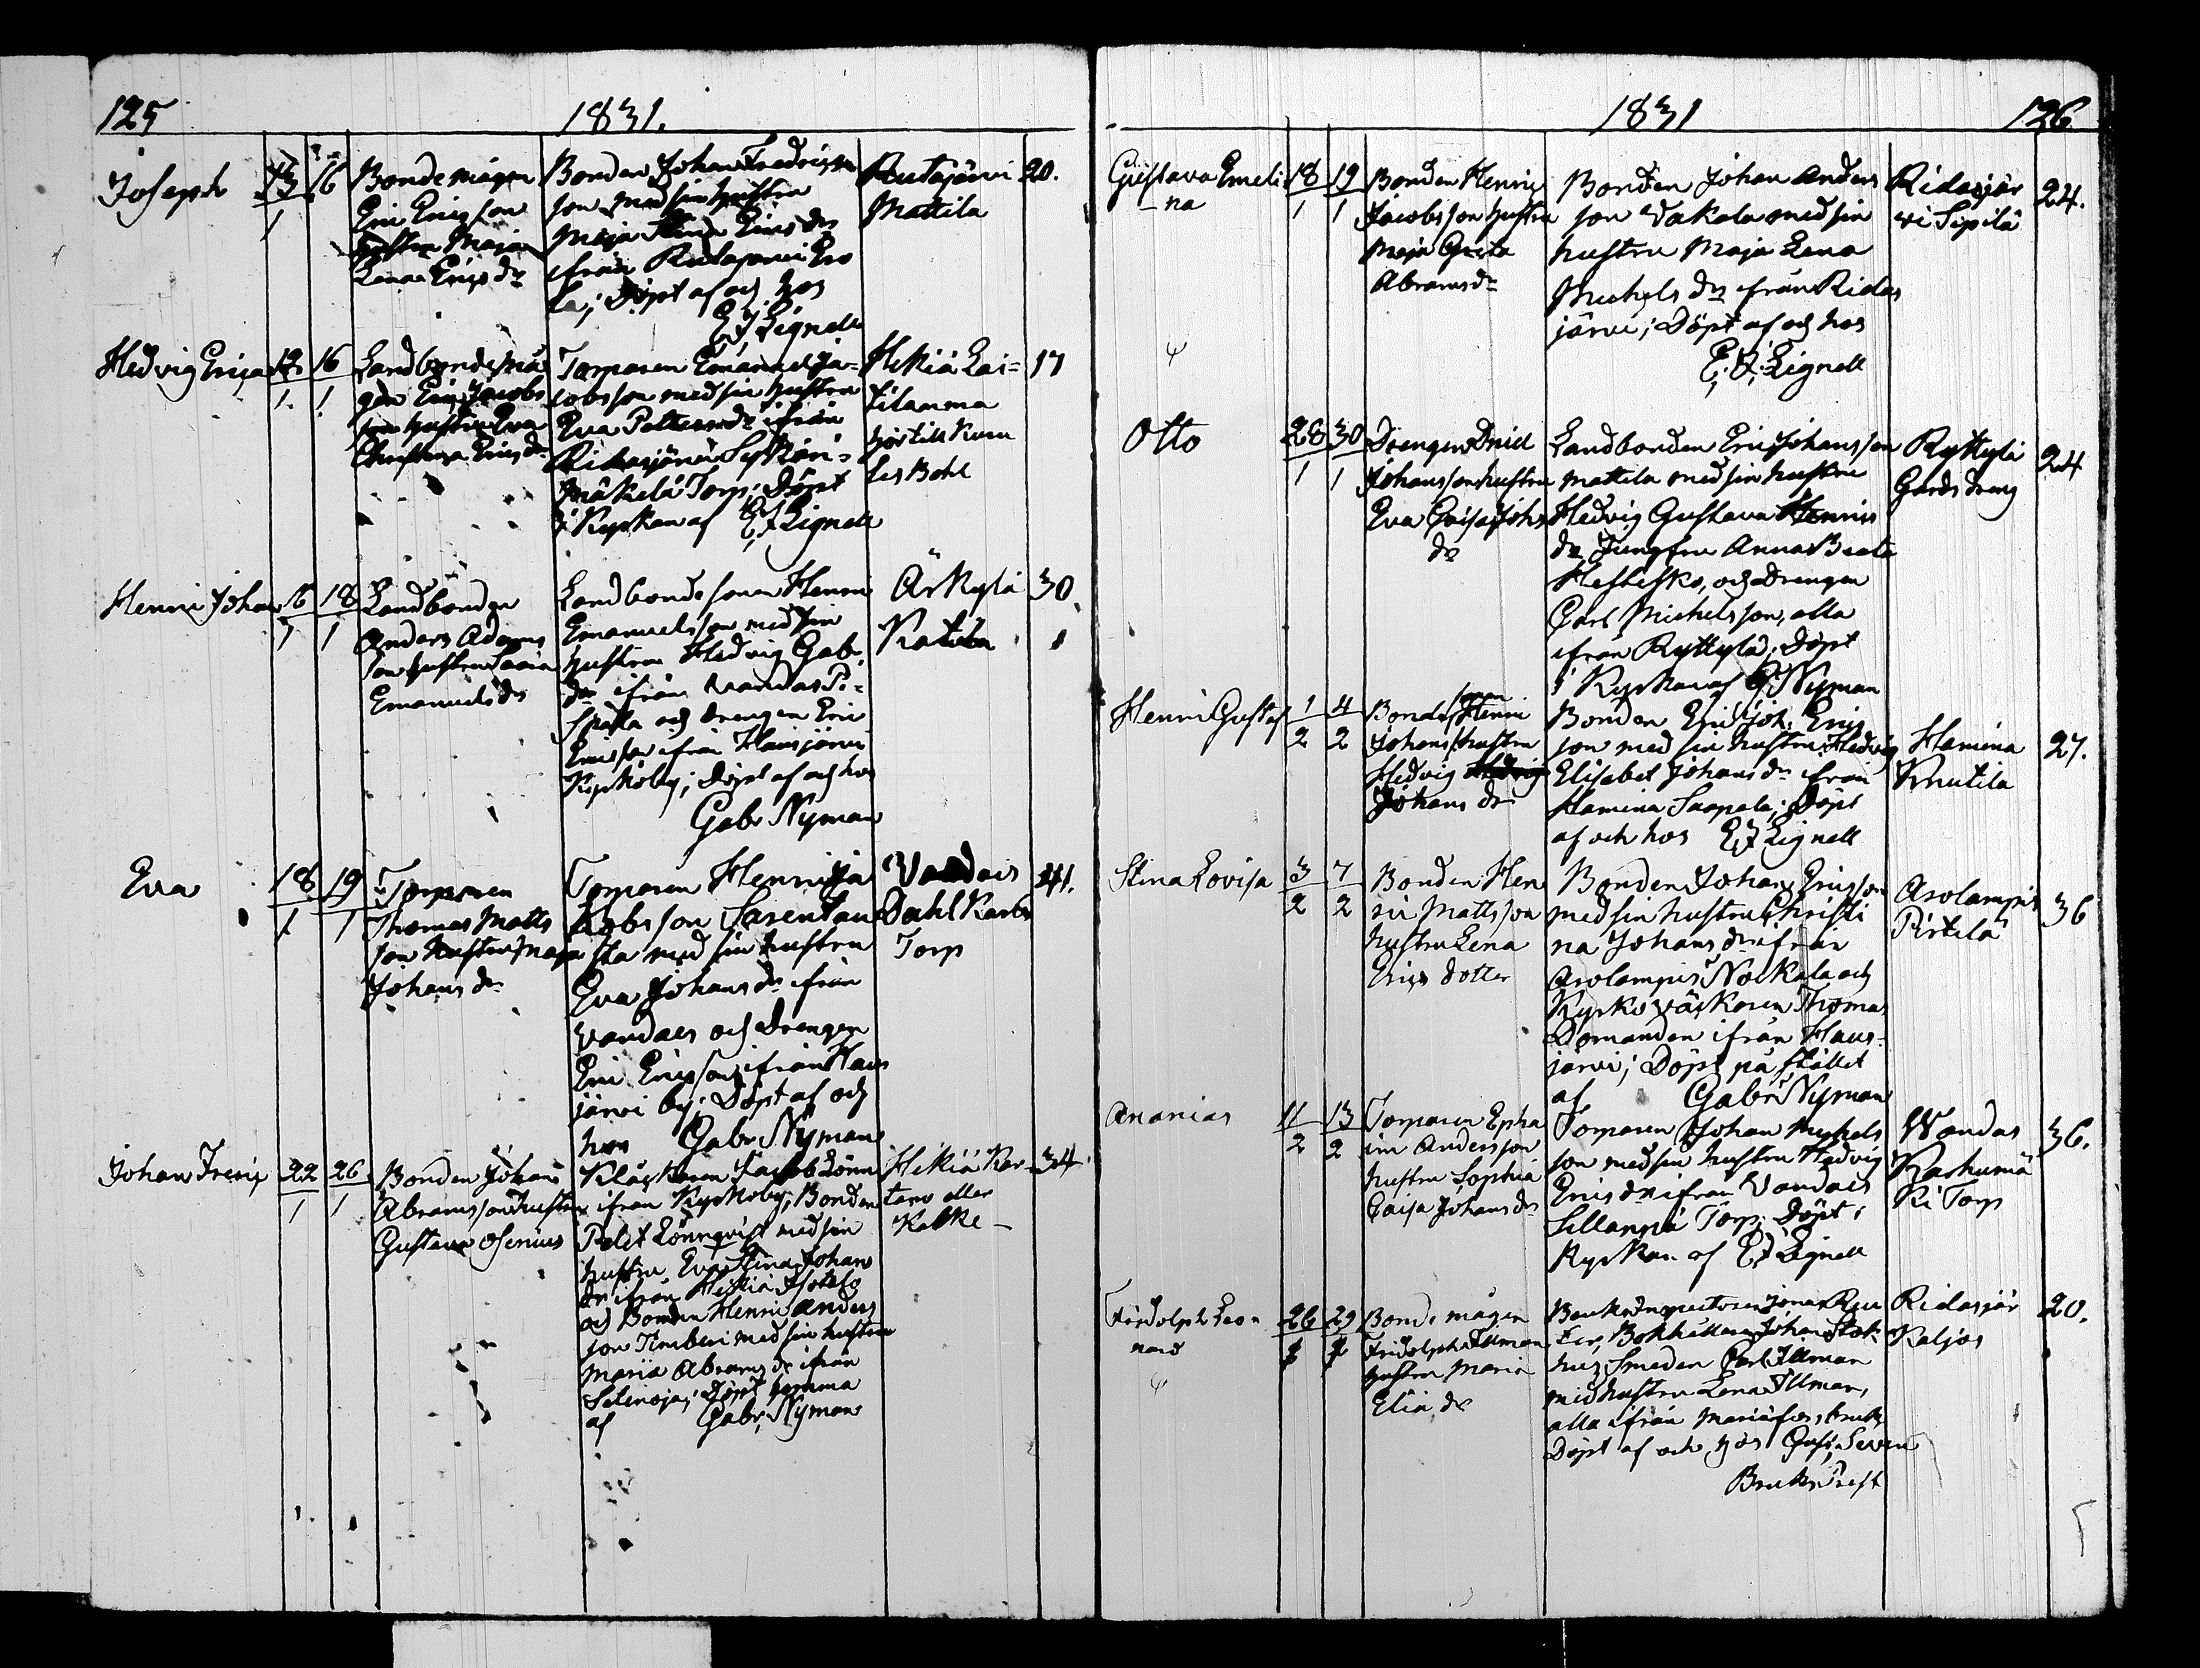 125
1831.
Joseph
13
1
16
Bondemågen
Eric Ericsson
hustru Maja
Lena Erics dr
Bonden Johan Fredrics
son med sin hustru
Maja Stina Erics dr
ifrån Rutajervi Ero
la; Döpt af och hos
E J Lignell
Rutajärvi
Mattila
20.
Hedvig Erica
12
1.
16
1.
Landbondemå
gen Eric Jacobs
son hustru Eva
Christina Erics dr
Torparen Emanuel Ja-
cobsson med sin hustru
Eva Pettersdr ifrån
Ridasjärvi
Mäkelä Torp; Döpt
i Kyrkan af E J Lignell
Hikiä Lai-
tilanma
hör till Kum
les Bohl
17
Henric Johan
16
1
18
1
Landbonden
Anders Adams
son hustru
Emanuels dr
Landbondesonen Henric
Emanuelsson med sin
hustru Hedvig Gab.
dr ifrån Vandas Pi-
spala och drengen Eric
Ericsson ifrån Hausjärvi
Kyrkoby; Döpt af och hos
Gabr Nyman
Ärkylä
Katila
30
Eva
18
1
19
1
Torparen
Thomas Matts
son hustru Maja
Johans dr
Torparen Henric Ja
kobsson Sarentau
sta med sin hustru
Eva Johans dr ifrån
Vandaes och Drengen
Eric Ericsson ifrån Haus
järvi by; Döpt af och
hos Gabr Nyman
Vandaes
Dahl Karbi
Torp
41.
Johan Freric
22
1
26
1
Bonden Johan
Abramsson hustru
Gustava Osenius
Kläckaren Jacob Lönn
ifrån Kyrkoby; Bonden
Petet Lönnqvist med sin
hustru Eva Stina Johans
dr ifrån Hikiä Hotelo
och Bonden Henric Anders
son Timberi med sin hustru
Maria Abrams dr ifrån
Selenoja; Döpt hemma
af Gabr. Nyman
Hikiä Kar
tano eller
Kalke -
34.
1831
126
Gustava Emeli
-na
18
1
19
1
Bonden Henric
Jacobsson hustru
Maja Greta
Abramsdr
Bonden Johan Anders
son Vakala med sin
hustru Maja Lena
Michels dr ifrån Ridas
järvi; Döpt af och hos
E. J. Lignell
Ridasjär
vi Sipilä
24.
Otto
28
1
30
1
Drengen
Johansson hustru
Eva Caisa Johs
dr
Landbonden Eric Johansson
Mattila med sin hustru
Hedvig Gustava Henrics
dr Jungfru Anna Beata
Heslesko, och Drengen
Carl Michelsson, alla
ifrån Ryttylä; Döpt
i Kyrkan af G Nyman
Ryttylä
Gårds dreng
24
Henric Gustaf
1
2
4
2
Bondesonen Henric
Johans hustru
Hedvig
Johans dr
Bonden Eric Joh. Erics
son med sin hustru Hedvig
Elisabet Johans dr ifrån
Hamina Saapala; Döpt
af och hos E J Lignell
Hamina
Knutila
27.
Stina Lovisa
3
2
7
2
Bonden Hen
ric Mattsson
hustru Lena
Erics dotter
Bonden Johan Ericsson
med sin hustru Christi
na Johans dr ifrån
Arolampis Nokkala och
Kyrkoväcktaren Thomas
Domanden ifrån Haus-
järvi; Döpt på stället
af Gabr Nyman
Arolampis
Pirtilä
36
Ananias
11
2
13
2
Torparen Epha
im Andersson
hustru Sophia
Caisa Johans dr
Torparen Johan Michels
son med sin hustru Hedvig
Erics dr ifrån Vandais
Sillanpä Torp; Döpt i
Kyrkan af E J Lignell
Wandas
Rahumä
ki Torp
36.
Fridolph Leo-
nard
26
29
Bondemågen
Fridolph Illman
hustru Maria
Elia dr
Bruksinspectoren Jonas Reu
ter, Bokhållaren Johan Stok
hus, Smeden Carl Illman
med hustru Lena Illman,
alla ifrån Mariefors bruk,
Döpt af och hos
Bruks Prest
Ridasjär
Kaljas
20.